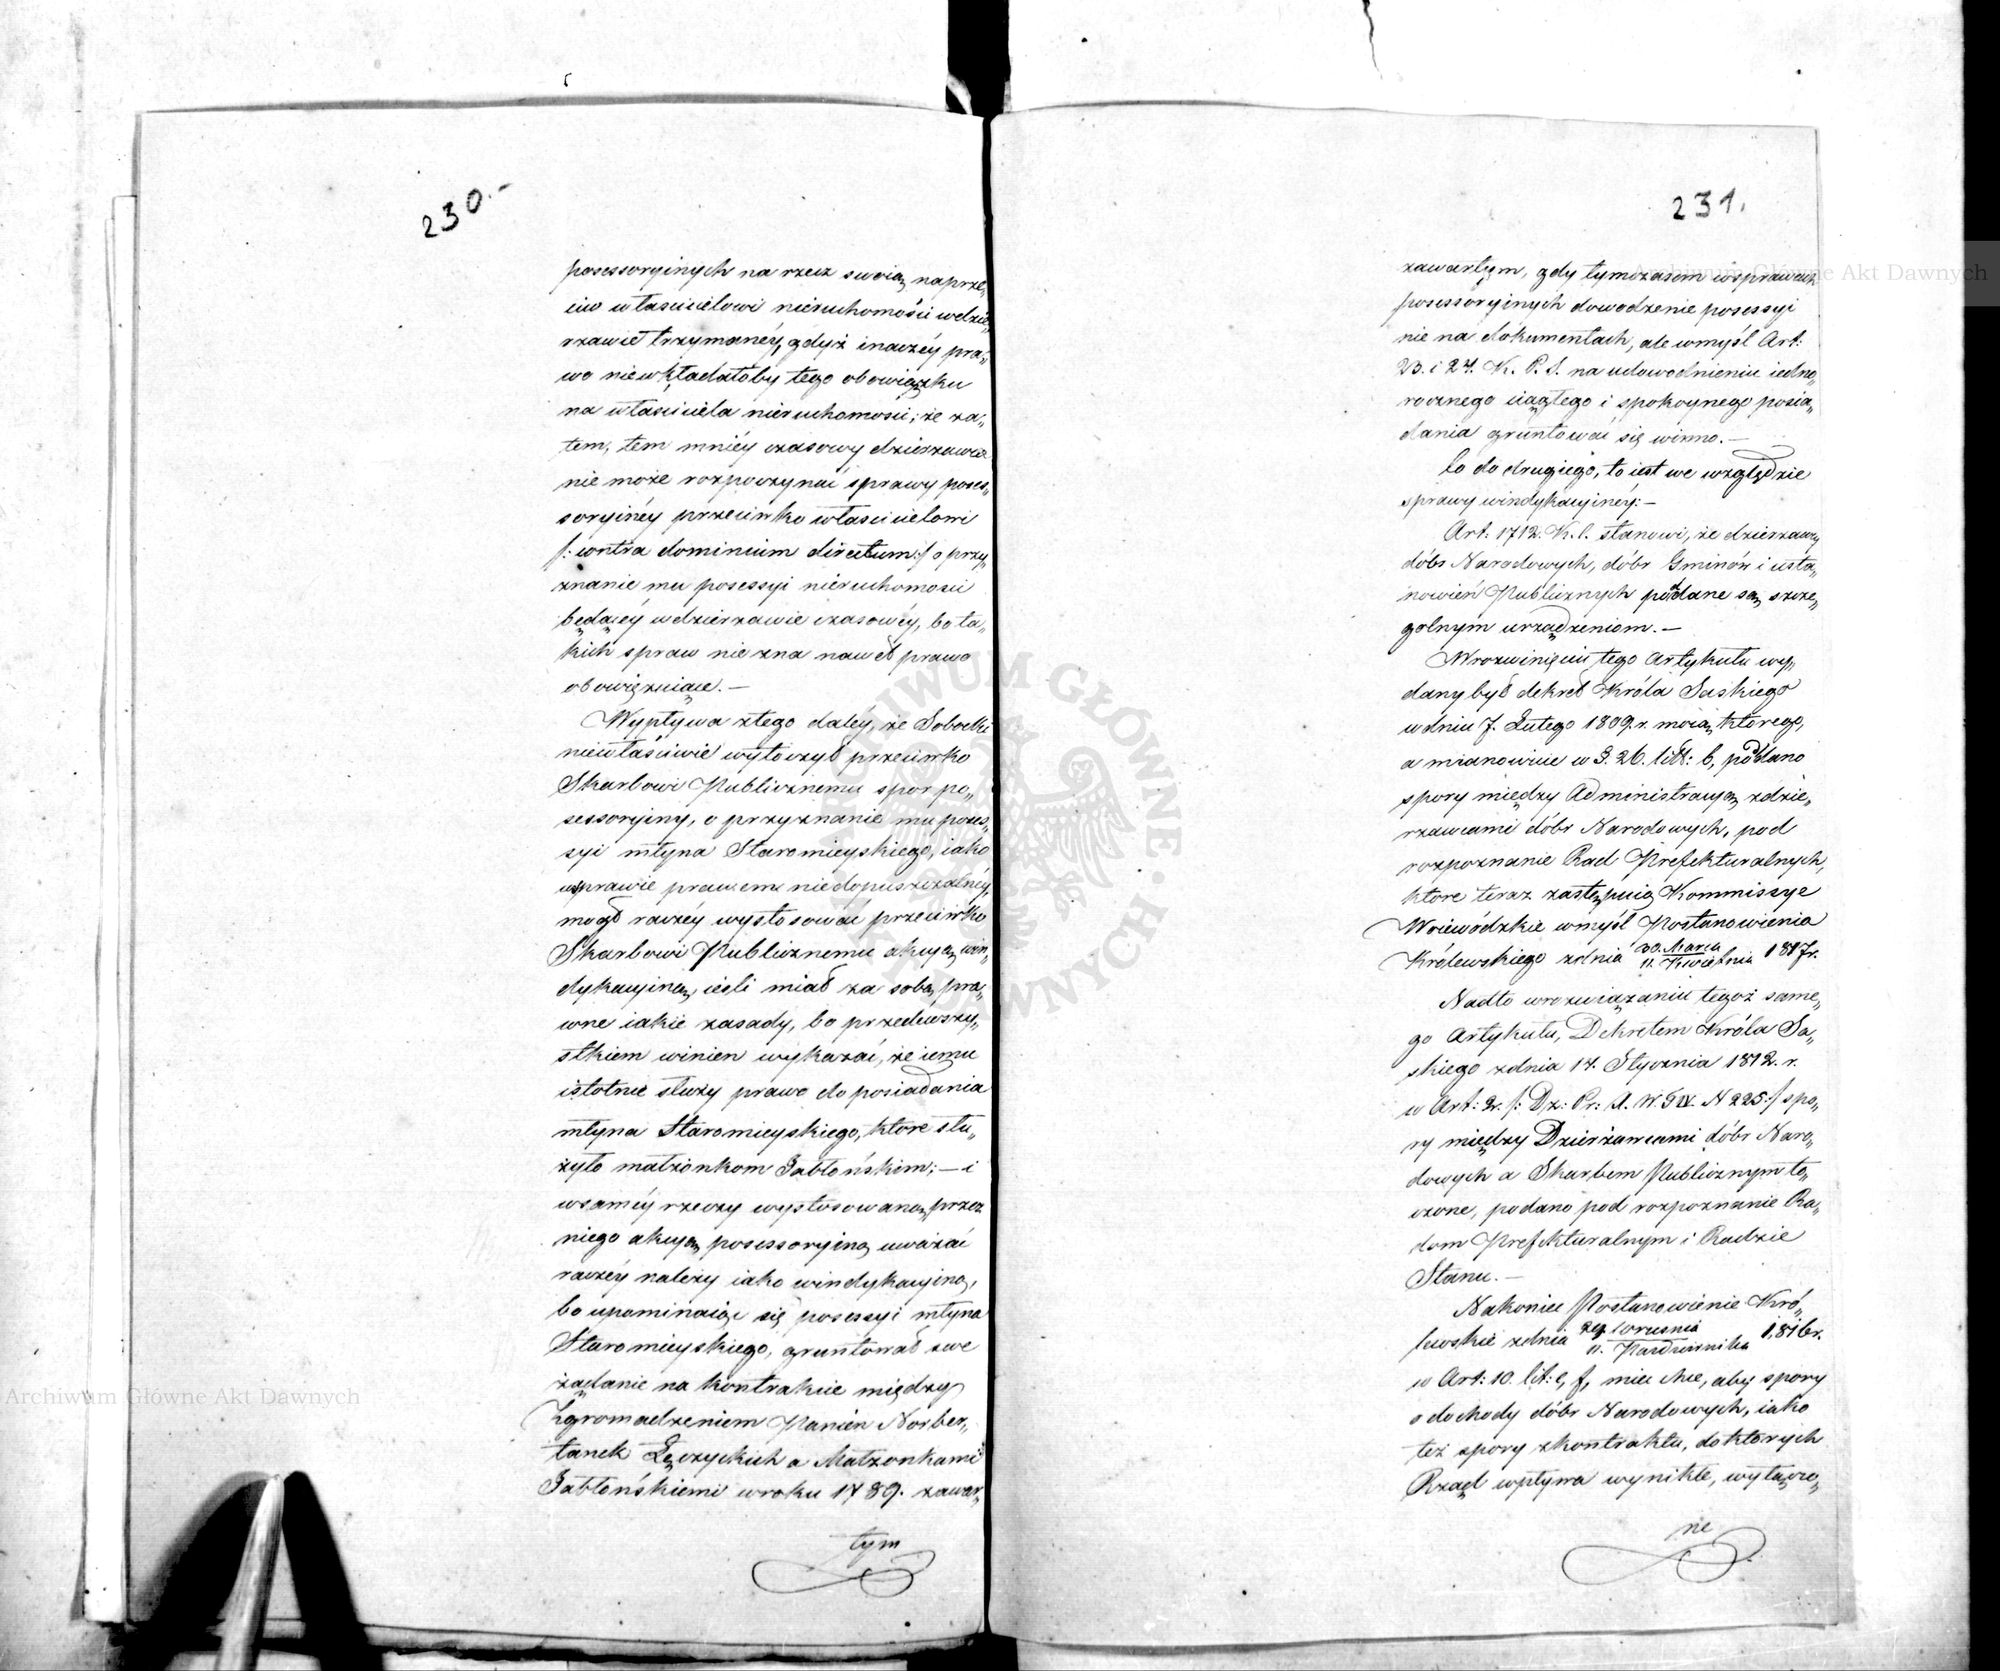 230.-
possessoryinych na rzecz swoią naprze„
ciw właścicielowi nieruchomości w dzie„
rzawie trzymanéy, gdyż inaczéy pra„
wo niewkładałoby tego obowiązku
na właściciela nieruchomości; że za„
tem, tem mniéy czasowy dzierzawca
nie może rozpoczynać sprawy poses„
soryinéy przeciwko właścicielowi
/: contra dominium directum:/ o przy„
znanie mu posessyi nieruchomości
będącéy w dzierzawie czasowéy, bo ta„
kich spraw nie zna nawet prawo
obowięzuiące.—
Wypływa ztego daléy, że Sobocki
niewłaściwie wytoczył przeciwko
Skarbowi Publicznemu spor po„
sessoryiny, o przyznanie mu poses„
syi młyna Staromieyskiego, iako
wsprawie prawem niedopuszczalnéy,
mogł raczéy wystosować przeciwko
Skarbowi Publicznemu akcyą win„
dykacyiną, ieśli miał za sobą pra„
wne iakie zasady, bo przedewszy„
stkiem winien wykazać, że iemu
istotnie służy prawo do posiadania
młyna Staromieyskiego, ktore słu„
żyło małżonkom Jabłońskim; — i
wsaméy rzeczy wystosowaną przez
niego akcyą possessoryiną uważać
raczéy należy iako windykacyiną,
bo upominaiąc się posessyi młyna
Staromieyskiego, gruntował swe
żądanie na kontrakcie między
Zgromadzeniem Panien Norber„
tanek Łęczyckich a Małżonkami
Jabłońskiemi w roku 1789. zawar„
tym
231.
zawartym, gdy tymczasem wsprawach
posessoryinych dowodzenie posessyi
nie na dokumentach, ale wmyśl Art:
23. i 24. K. P. S. na udowodnieniu iedno„
rocznego ciągłego i spokoynego posia„
dania gruntować się winno.—
Co do drugiego, to iest we względzie
sprawy windykacyinéy:—
Art: 1712. K. C. stanowi, że dzierzawy
dóbr Narodowych, dóbr Gminów i usta„
nowień Publicznych poddane są szcze„
golnym urządzeniom.—
W rozwinięciu tego Artykułu wy„
dany był dekret Króla Saskiego
w dniu 7. Lutego 1809. r. mocią ktorego,
a mianowicie w §. 26. litt: b, poddano
spory między Administracyą zdzie„
rzawcami dóbr Narodowych, pod
rozpoznanie Rad Prefekturalnych,
ktore teraz zastępuią Kommissye
Woiewódzkie wmyśl Postanowienia
Królewskiego zdnia 30. Marca / 11. Kwietnia 1817r.
Nadto wrozwiązaniu tegoż same„
go Artykułu, Dekretem Króla Sa„
skiego zdnia 14. Stycznia 1812. r.
w Art: 2. /: Dz: Pr: X. W. T. IV. N 225:/ spo„
ry między Dzierżawcami dóbr Naro„
dowych a Skarbem Publicznym to„
czone, podano pod rozpoznanie Ra„
dom Prefekturalnym i Radzie
Stanu.—
Nakoniec Postanowienie Kró„
lewskie zdnia 29. Września / 11. Października 1816r.
w Art: 10. lit: e, f, mieć chce, aby spory
o dochody dóbr Narodowych, iako
też spory zkontraktu, do ktorych
Rząd wpływa wynikłe, wyłączo„
ne
Archiwum Główne Akt Dawnych
Archiwum Główne Akt Dawnych
ARCHIWUM GŁÓWNE AKT DAWNYCH